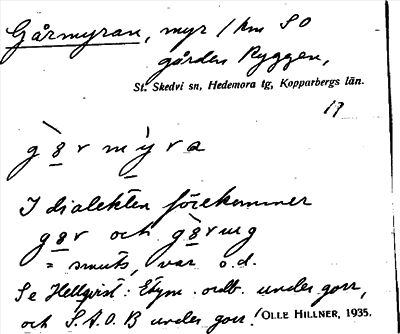 Gårmyran, myr 1 km S O
gården Ryggen,
St. Skedvi sn, Hedemora tg, Kopparbergs län.
17
g8r mỳra
I dialekten förekommer
g8r och g8rug
= smuts, var o.d.
Se Hellqvist: Etym. ordb. under gorr,
och S.A.O.B under gorr! OLLE HILLNER, 1935.